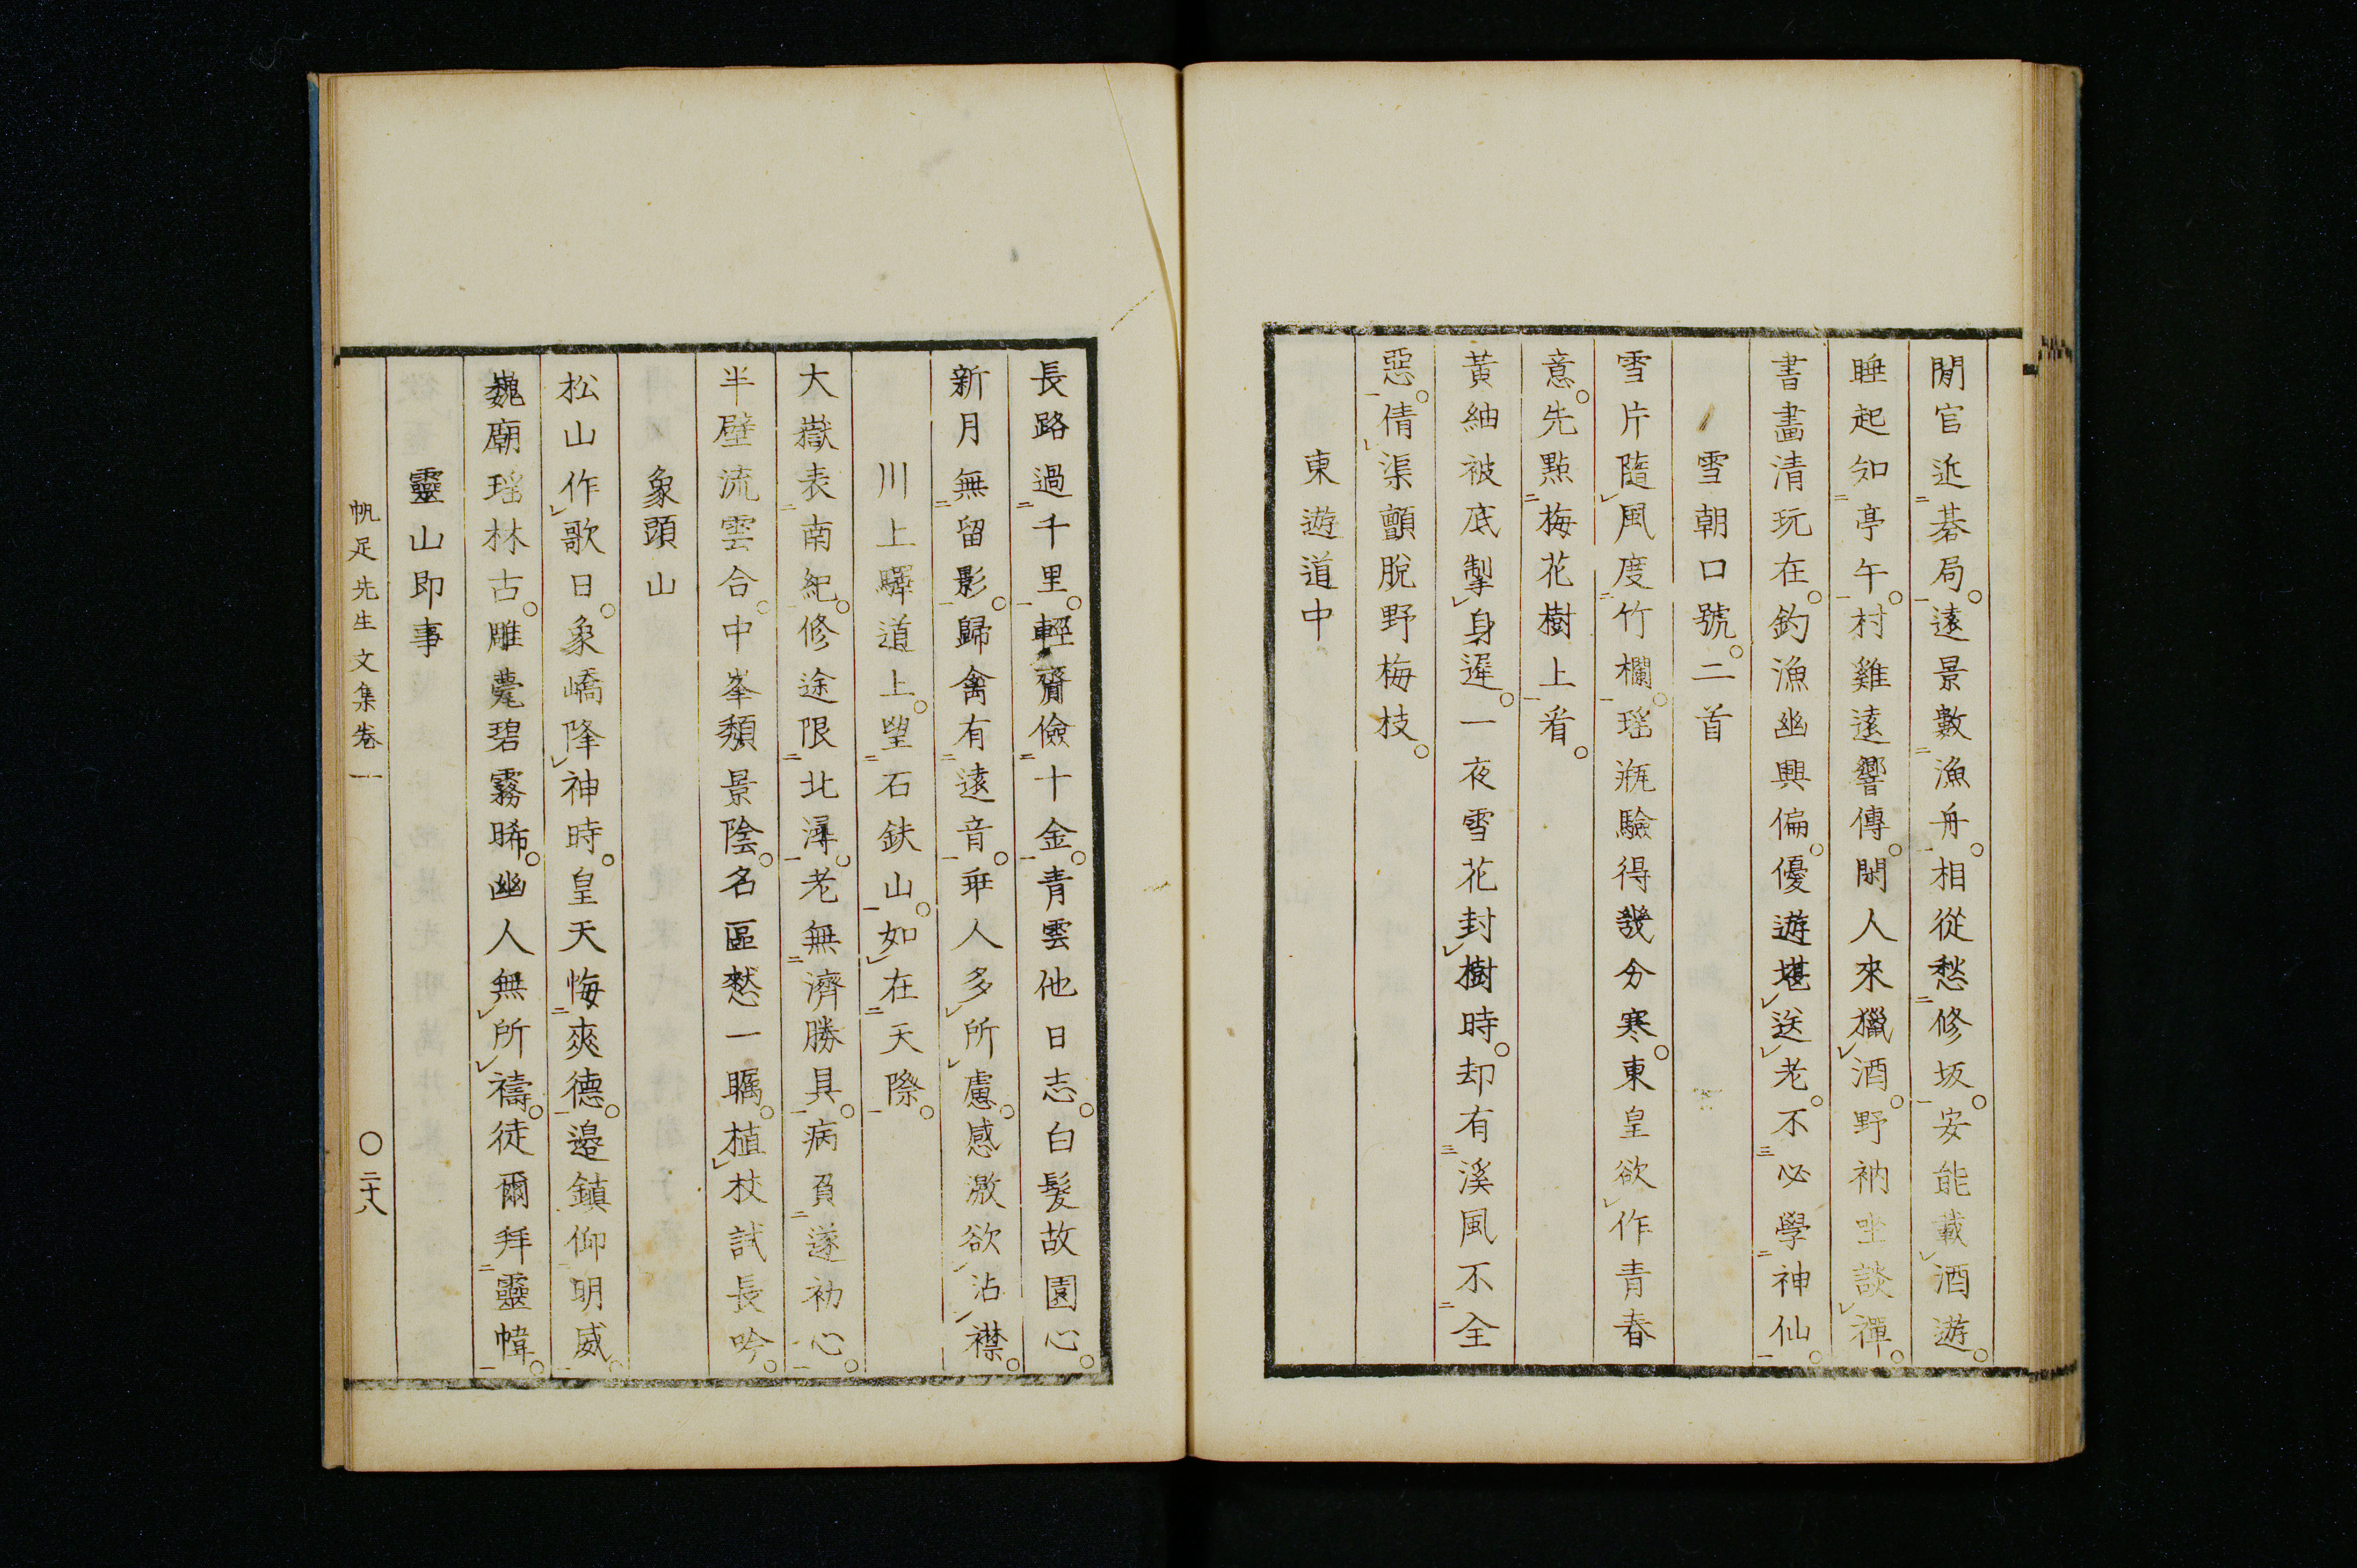 閒官近碁局。遠景數漁舟。相從愁修坂。安能載酒遊。
睡起知亭午。村雞遠響傳。閑人來獵酒。野衲坐談禪。
書畫清玩在。釣漁幽興偏。優遊堪送老。不必學神仙。
雪朝口號。二首
雪片隨風度竹欄。瑶瓶驗得幾分寒。東皇欲作青春
意。先點梅花樹上看。
黃紬被底掣身遲。一夜雪花封樹時。却有溪風不全
惡。倩渠顫脫野梅枝。
東遊道中
長路過千里。輕齎儉十金。青雲他日志。白髮故園心。
新月無留影。歸禽有遠音。乖人多所慮。感激欲沾襟。
川上驛道上。望石鈇山。如在天際。
大嶽表南紀。修途限北潯。老無濟勝具。病負遂初心。
半壁流雲合。中峯頹景陰。名區愁一矚。植杖試長吟。
象頭山
松山作歌曰。象嶠降神時。皇天悔爽德。邉鎮仰明威。
巍廟瑶林古。雕甍碧霧晞。幽人無所禱。徒爾拜靈幃。
靈山即事
帆足先生文集卷一 〇二十八